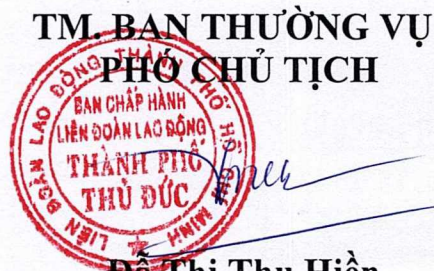 TM. BAN THƯỜNG VỤ
PHÓ CHỦ TỊCH
LIÊN ĐOÀN LAO ĐỘNG THÀNH PHỐ HỒ CHÍ MINH
BAN CHẤP HÀNH
LIÊN ĐOÀN LAO ĐỘNG
THÀNH PHỐ
THỦ ĐỨC
Đỗ Thị Thu Hiền